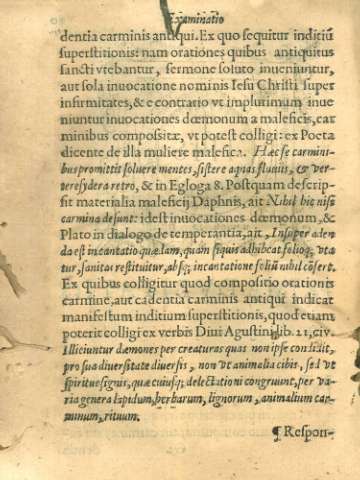 Examinatio
dentia carminis antiqui. Ex quo sequitur inditiũ
superstitionis: nam orationes quibus antiquitus
sancti vtebantur, sermone soluto inueniuntur,
aut sola inuocatione nominis Iesu Christi super
infirmitates, & e contrario vt implurimum inue
niuntur inuocationes dæmonum a maleficis, car
minibus compositæ, vt potest colligi: ex Poeta
dicente de illa muliere malefica. Hæc se carmini-
bus promittit soluere mentes, sistere aquas fluuiis, & ver-
tere sydera retro, & in Egloga 8. Postquam descrip-
sit materialia maleficij Daphnis, ait Nihil hic nisi
carmina desunt: idest inuocationes dæmonum, &
Plato in dialogo de temperantia, ait, Insuper aden-
da est incantatio quædam, quam siquis adhibeat folioq; vta
tur, sanitas restituitur, absq; incantatione foliũ nihil cõfert.
Ex quibus colligitur quod compositio orationis
carmine, aut cadentia carminis antiqui indicat
manifestum inditium superstitionis, quod etiam
poterit colligi ex verbis Diui Agustini lib. 21, ciu.
Illiciuntur dæmones per creaturas quas non ipse condidit,
pro sua diuersitate diuersis, non vt animalia cibis, sed vt
spiritus signis, quæ cuiusq; delectationi congruunt, per va
ria genera lapidum, herbarum, lignorum, animalium car
minum, rituum.
¶ Respon-